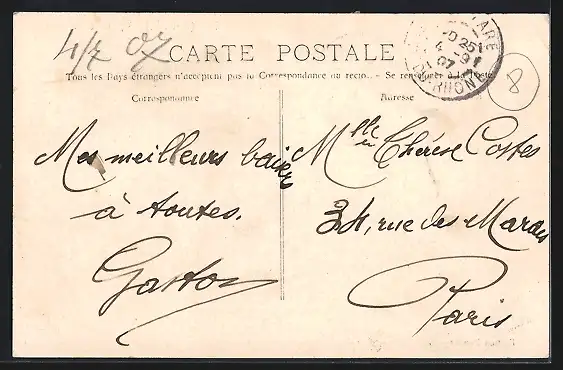 4/7 07
CARTE POSTALE
Tous les Pays étrangers n'acceptent pas la Correspondance au recto. - Se renseigner à la Poste
Correspondance
Adresse
8
TARE
25
4 - 9
07
DU-RHÔNE
Mes meilleurs baisers
à toutes.
Gaston
Mlle Thérèse Costes
34, rue des Marais
Paris